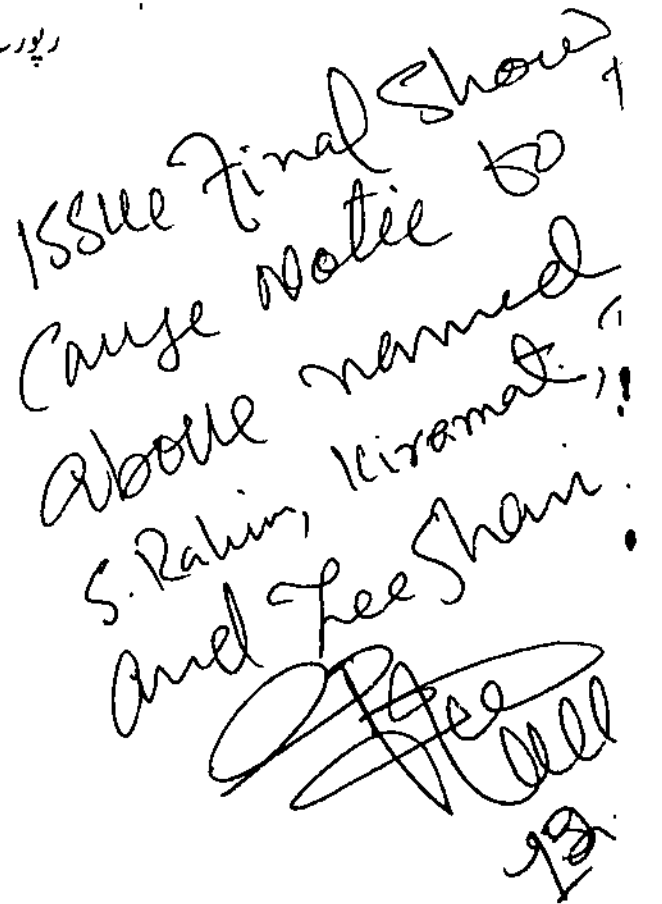 رپور
Issue Final Show
Cause Notie to
above named
S. Rahim, Kiramat,
and Zeeshan.